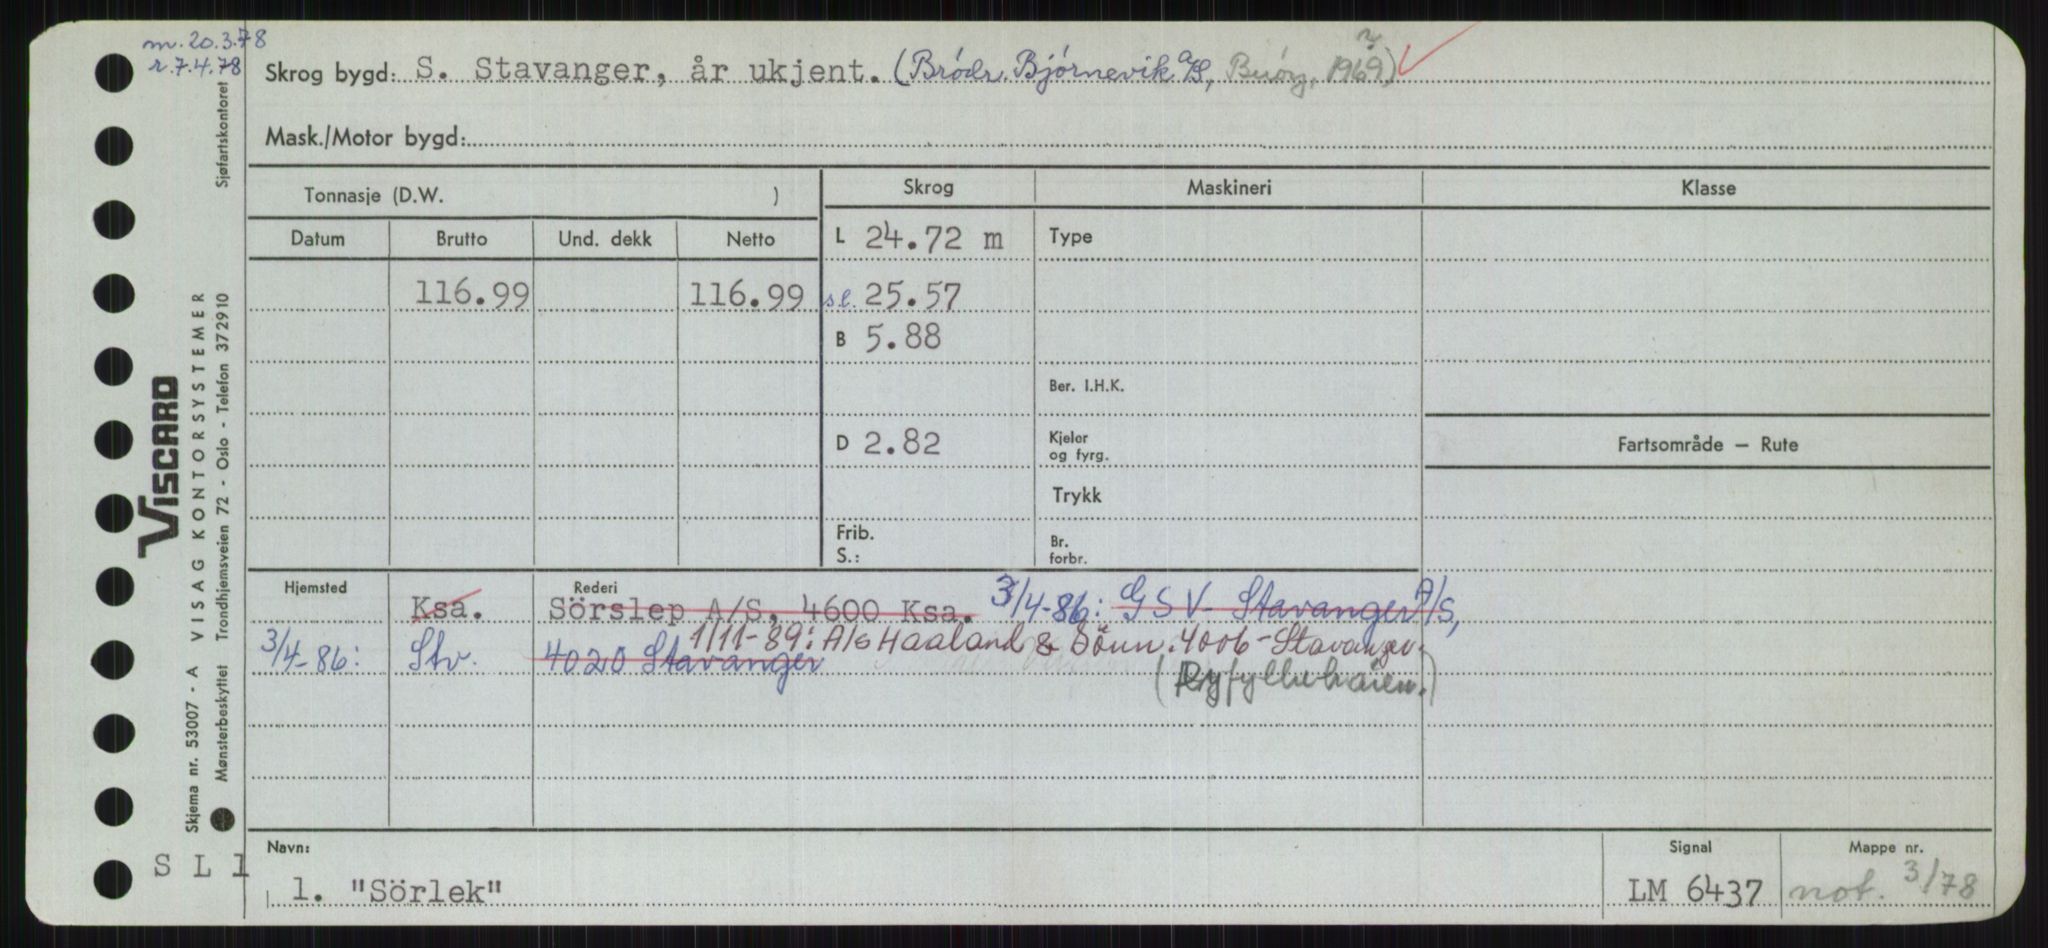 m. 20.3.78
r. 7.4.78
Skrog bygd: S. Stavanger, år ukjent. (Brödr. Björnevik A/S, 1969)
Mask./Motor bygd:
Tonnasje (D.W. )
Skrog
Maskineri
Klasse
Datum Brutto Und. dekk Netto
L 24.72 m
Type
116.99 116.99
s.l. 25.57
B 5.88
Ber. I.H.K.
D 2.82
Kjeler
og fyrg.
Fartsområde — Rute
Trykk
Frib.
S.:
Br.
forbr.
Hjemsted
Rederi
Ksa. Sörslep A/S, 4600 Ksa. 3/4-86: GSV Stavanger A/S,
1/11-89: A/s Haaland & Sönn. 4006-Stavanger.
3/4-86: Stv. 4020 Stavanger
(Ryfyllehaien.)
Navn:
1. "Sörlek"
Signal
LM 6437
Mappe nr.
not. 3/78
S L 1
VISCARD
Skjema nr. 53007 - A VISAG KONTORSYSTEMER
Mønsterbeskyttet Trondhjemsveien 72 - Oslo - Telefon 372910
Sjøfartskontoret